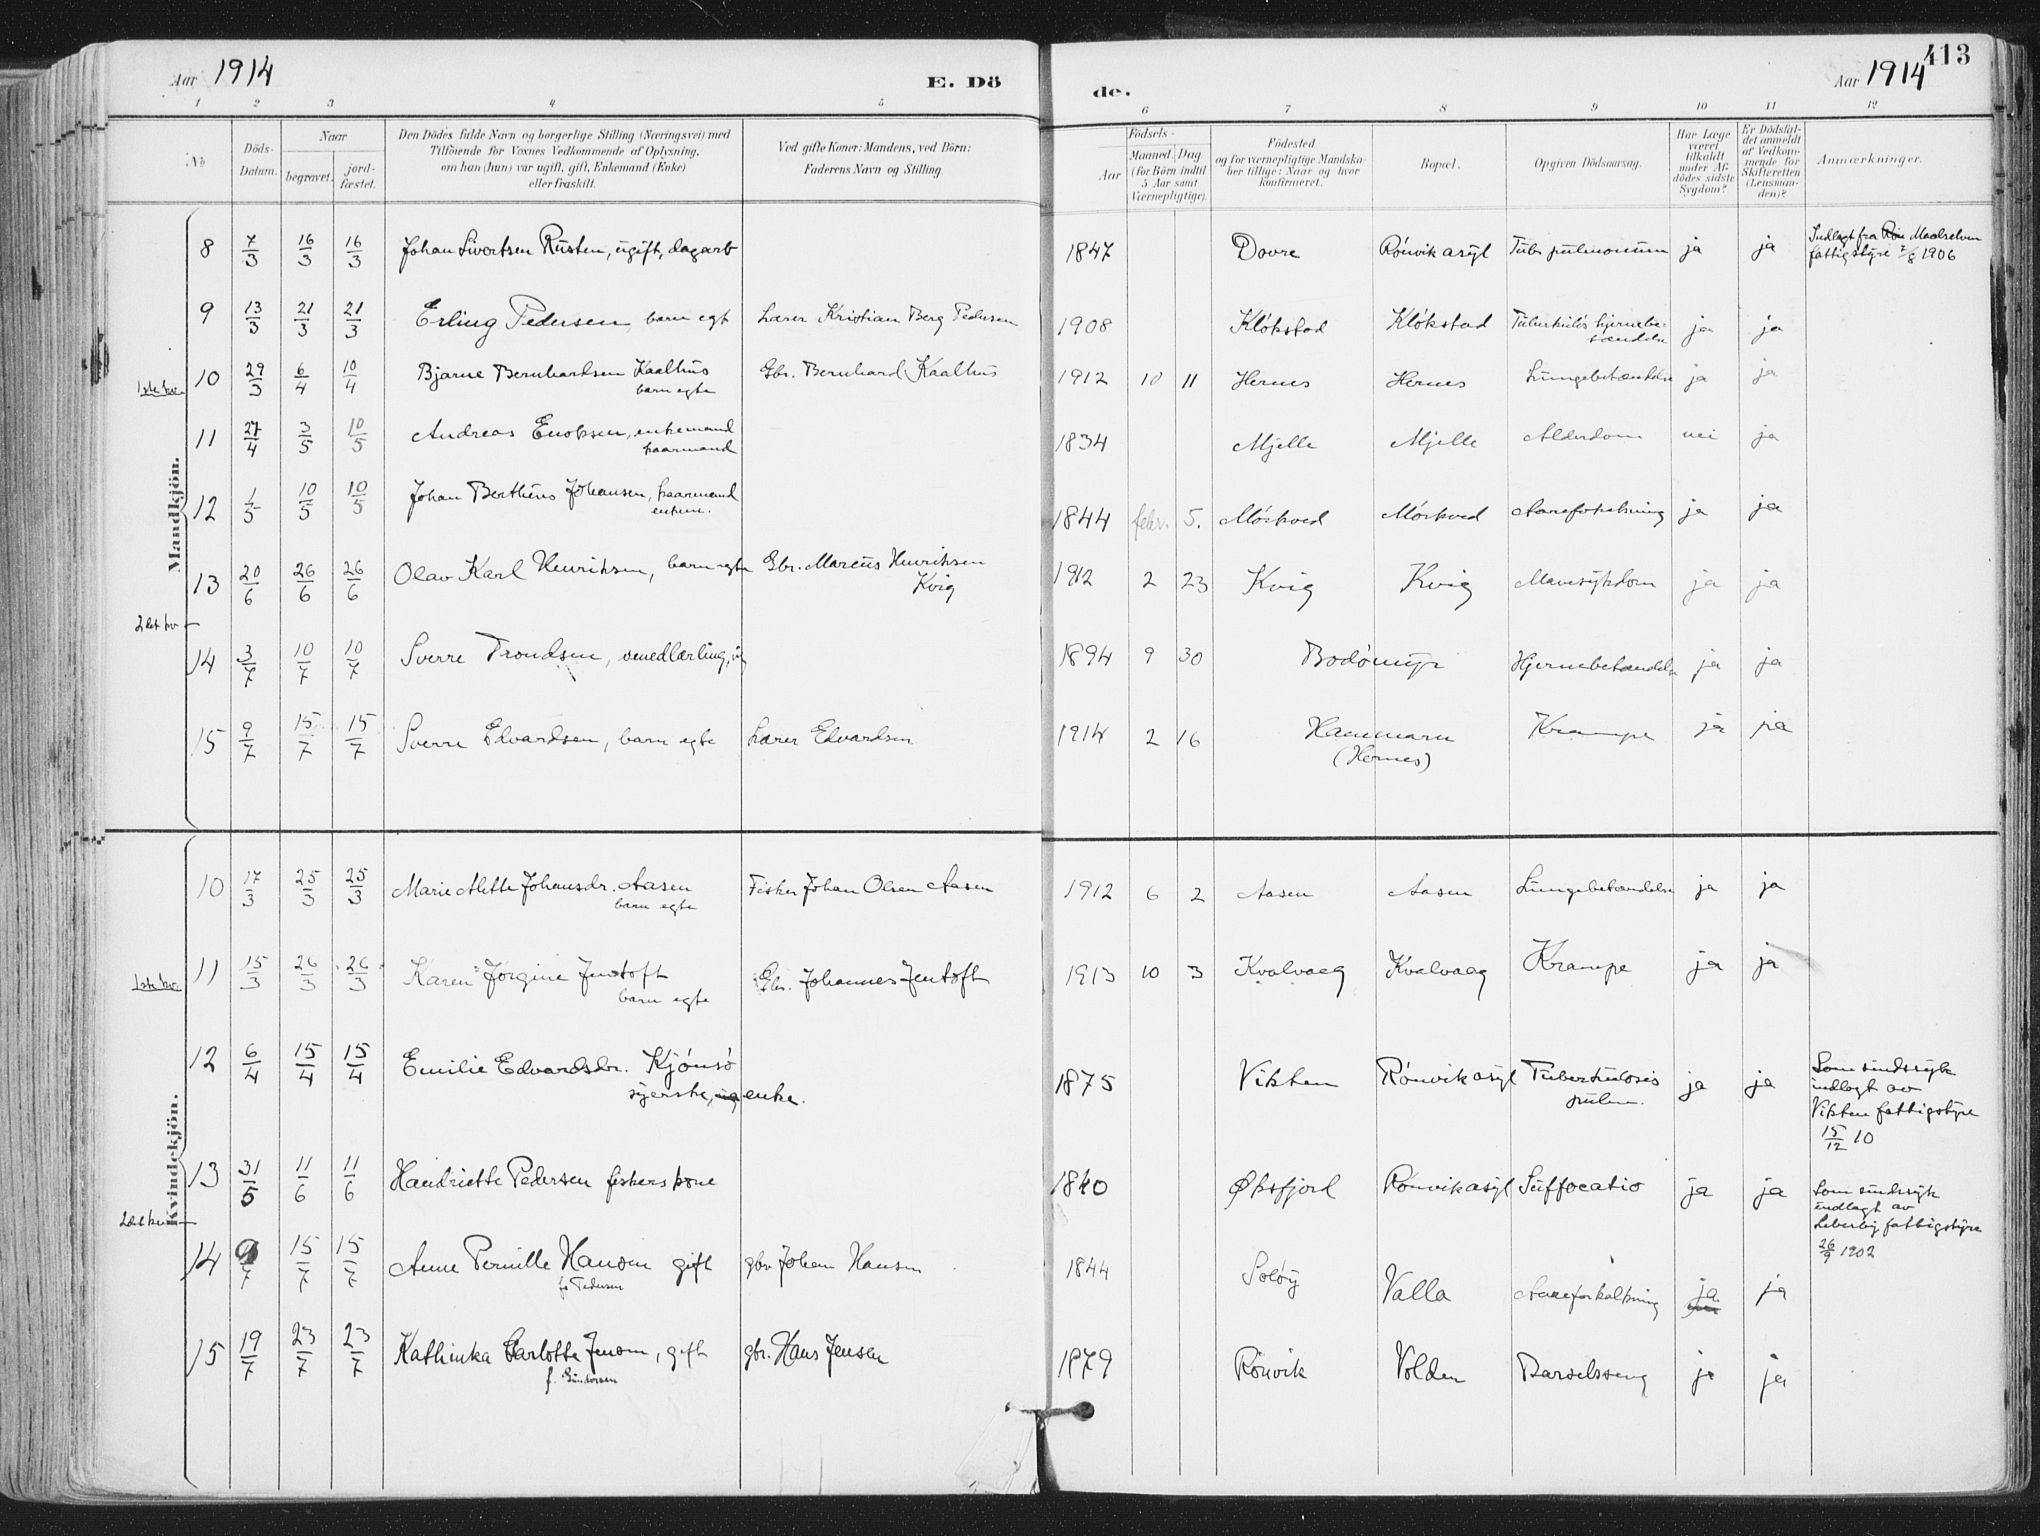 413
Aar 1914
E. Dö
de.
Aar 1914
1 2 3 4 5 6 7 8 9 10 11 12
No
Döds-Datum.
Naar
begravet.
jord-fæstet.
Den Dödes fulde Navn og borgerlige Stilling (Næringsvei) med
Tilföiende for Voxnes Vedkommende af Oplysning.
om han (hun) var ugift, gift, Enkemand (Enke)
eller fraskilt.
Ved gifte Koner: Mandens, ved Börn:
Faderens Navn og Stilling.
Födsels-
Aar
Maaned. Dag
(for Börn indtil
5 Aar samt
Værnepligtige).
Födested
og for værnepligtige Mandska-
ber tillige: Naar og hvor
konfirmeret.
Bopæl.
Opgiven Dödsaarsag.
Har Læge
været
tilkaldt
under Af-
dödes sidste
Sygdom?
Er Dödsfal-
det anmeldt
af Vedkom-
mende for
Skifteretten
(Lensman-
den)?
Anmærkninger.
Mandkjön.
8 7/3 16/3 16/3 Johan Sivertsen Rusten, ugift, dagarb 1847 Dovre Rönvik asyl Tub. pulmonum ja ja Indlagt fra Maalselven
fattigstyre 7/8 1906
9 13/3 21/3 21/3 Erling Pedersen, barn egt Lærer Kristian Berg Pedersen 1908 Klökstad Klökstad Tuberkulös hjernebe-
tændelse ja ja
1ste kv. 10 29/3 6/4 10/4 Bjarne Bernhardsen Kaalhus Gbr. Bernhard Kaalhus 1912 10 11 Hernes Hernes Lungebetændelse ja ja
barn egte
11 27/4 3/5 10/5 Andreas Enoksen, enkemand 1834 Mjelle Mjelle Alderdom nei ja
kaarmand
12 1/5 10/5 10/5 Johan Berthinus Johansen, kaarmand 1844 febr. 5. Mörkved Mörkved Aareforkalkning ja ja
enkem.
13 20/6 26/6 26/6 Olav Karl Henriksen, barn egte Gbr. Marcus Henriksen 1912 2 23 Kvig Kvig Mavesykdom ja ja
Kvig
2det kv
14 3/7 10/7 10/7 Sverre Trondsen, 1894 9 30 Bodömyr Hjernebetændelse ja ja
15 9/7 15/7 15/7 Sverre Edvardsen, barn egte Lærer Edvardsen 1914 2 16 Hammarn Krampe ja ja
(Hernes)
Kvindekjön.
10 17/3 25/3 25/3 Marie Alette Johansdr. Aasen Fisker Johan Olsen Aasen 1912 6 2 Aasen Aasen Lungebetændelse ja ja
barn egte
1ste kv. 11 15/3 26/3 26/3 Karen Jörgine Jentoft Gbr. Johannes Jentoft 1913 10 3 Kvalvaag Kvalvaag Krampe ja ja
barn egte
12 6/4 15/4 15/4 Emilie Edvardsdr. Kjönsö 1875 Vikten Rönvik asyl Tuberkulosis
pulm. ja ja Som sindssyk
indlagt av
Vikten fattigstyre
15/12 10
syerske, enke.
13 31/5 11/6 11/6 Handriette Pedersen fiskers kone 1840 Øksfjord Rönvik asyl Suffocatio ja ja Som sindssyk
indlagt av
fattigstyre
26/9 1902
2det kv
14 9/7 15/7 15/7 Anne Pernille Hansen gift gbr Johan Hansen 1844 Solöy Valla Aareforkalkning ja ja
f. Pedersen
15 19/7 23/7 23/7 Kathinka Carlotte Jensen, gift gbr. Hans Jensen 1879 Rönvik Volden Barselseng ja ja